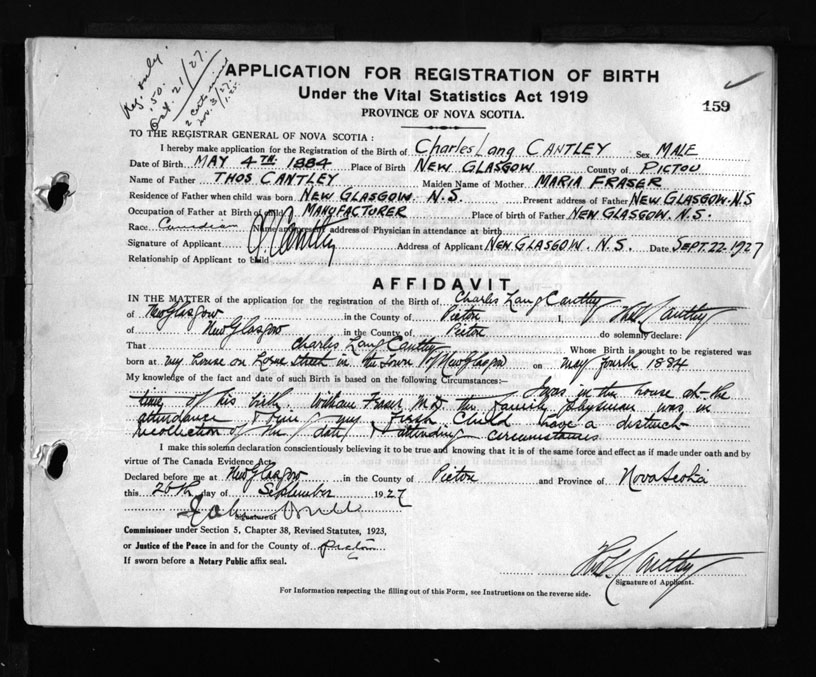 Reg. only.
.50.
Oct. 21/27.
2 Certs
Nov. 3/27.
1.25.
APPLICATION FOR REGISTRATION OF BIRTH
Under the Vital Statistics Act 1919
PROVINCE OF NOVA SCOTIA.
159
TO THE REGISTRAR GENERAL OF NOVA SCOTIA :
I hereby make application for the Registration of the Birth of Charles Lang CANTLEY Sex MALE
Date of Birth MAY 4TH 1884 Place of Birth NEW GLASGOW County of PICTOU
Name of Father THOS CANTLEY Maiden Name of Mother MARIA FRASER
Residence of Father when child was born NEW GLASGOW N.S. Present address of Father NEW GLASGOW. N.S
Occupation of Father at Birth of child MANUFACTURER Place of birth of Father NEW GLASGOW. N.S.
Race Canadian Name and present address of Physician in attendance at birth
Signature of Applicant Cantley Address of Applicant NEW GLASGOW. N.S. Date SEPT. 22-1927
Relationship of Applicant to child
AFFIDAVIT
IN THE MATTER of the application for the registration of the Birth of Charles Lang Cantley
of New Glasgow in the County of Pictou I, Thos Cantley
of New Glasgow in the County of Pictou do solemnly declare:
That Charles Lang Cantley Whose Birth is sought to be registered was
born at my house on Street in the town of New Glasgow on May fourth 1884
My knowledge of the fact and date of such Birth is based on the following Circumstances:— I was in the house at the
time of his birth. William Fraser M.D. the family physician was in
attendance my first child have a distinct
recollection of the date & attending circumstances
I make this solemn declaration conscientiously believing it to be true and knowing that it is of the same force and effect as if made under oath and by
virtue of The Canada Evidence Act.
Declared before me at New Glasgow in the County of Pictou and Province of Nova Scotia
this 26th day of September 1927
John
Signature of
Commissioner under Section 5, Chapter 38, Revised Statutes, 1923,
or Justice of the Peace in and for the County of Pictou
If sworn before a Notary Public affix seal.
Thos Cantley
Signature of Applicant.
For Information respecting the filling out of this Form, see Instructions on the reverse side.